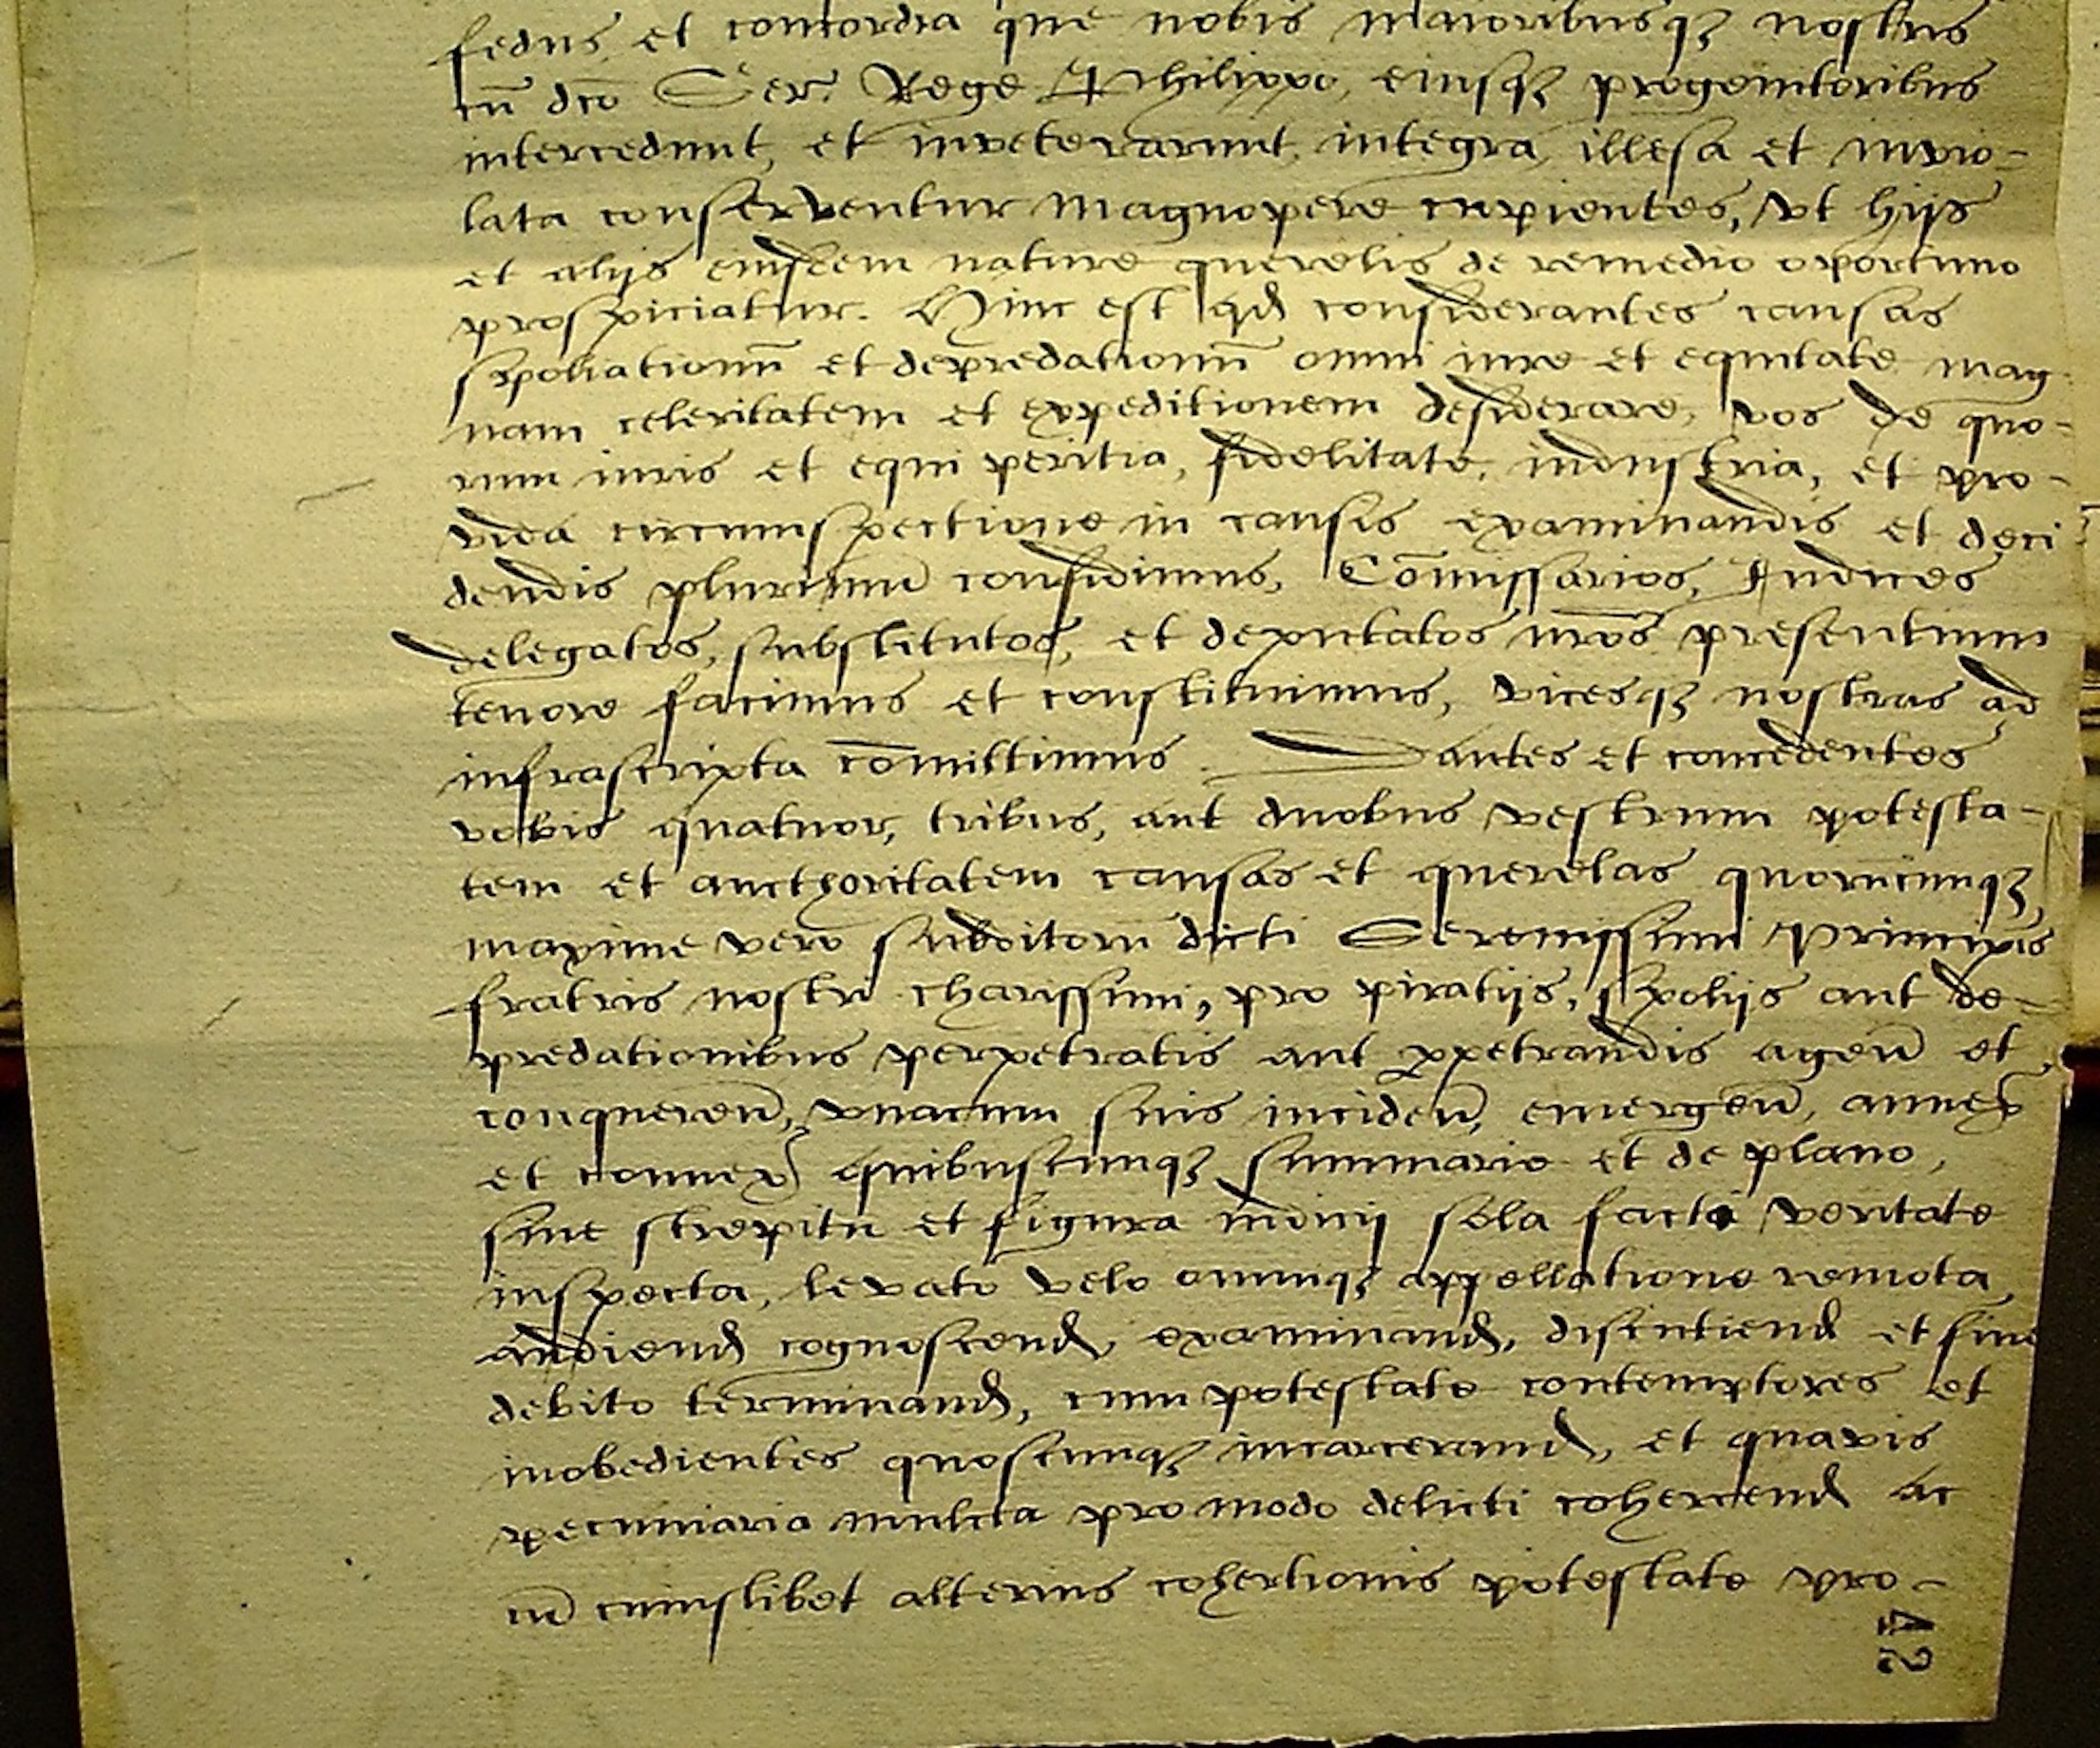 fedus et concordia que nobis maioribusqȝ nostris
cū dcō Ser. Rege Philippo, eiusqȝ progenitoribus
intercedunt, et inveterarunt, integra, illesa et invio-
lata conserventur magnopere cupientes, vt hijs
et alijs eiusdem nature querelis de remedio oportuno
prospiciatur. Hinc est qđ considerantes causas
spoliationū et depredationū omni iure et equitate mag
nam celeritatem et expeditionem desiderare, vos de quo-
rum iuris et equi peritia, fidelitate, industria, et pro-
vida circumspectione in causis examinandis et deci
dendis plurimū confidimus, Cōmissarios, Iudices
delegatos, substitutos, et deputatos nrōs presentium
tenore facimus et constituimus, vicesqȝ nostras ad
infrascripta cōmittimus. Dantes et concedentes
vobis quatuor, tribus, aut duobus vestrum potesta-
tem et aucthoritatem causas et querelas quorūcumqȝ,
maxime vero subditorū dicti Serenissimi Principis
fratris nostri charissimi, pro piratijs, spolijs aut de-
predationibus perpetratis aut ꝑpetrandis ageñ et
conquereñ, vnacum suis incideñ, emergeñ, annex̃
et connex̃ quibuscumqȝ summarie et de plano,
sine strepitu et figura iudicij sola facti veritate
inspecta, levato velo omniqȝ appellatione remota
audiend̃ cognoscend̃, examinand̃, discutiend̃ et fine
debito terminand̃, cum potestate contemptores et
inobedientes quoscumqȝ incarcerand̃, et quavis
pecuniaria mulcta pro modo delicti cohercend̃ ac
cū cuiuslibet alterius cohertionis potestate pro-
42